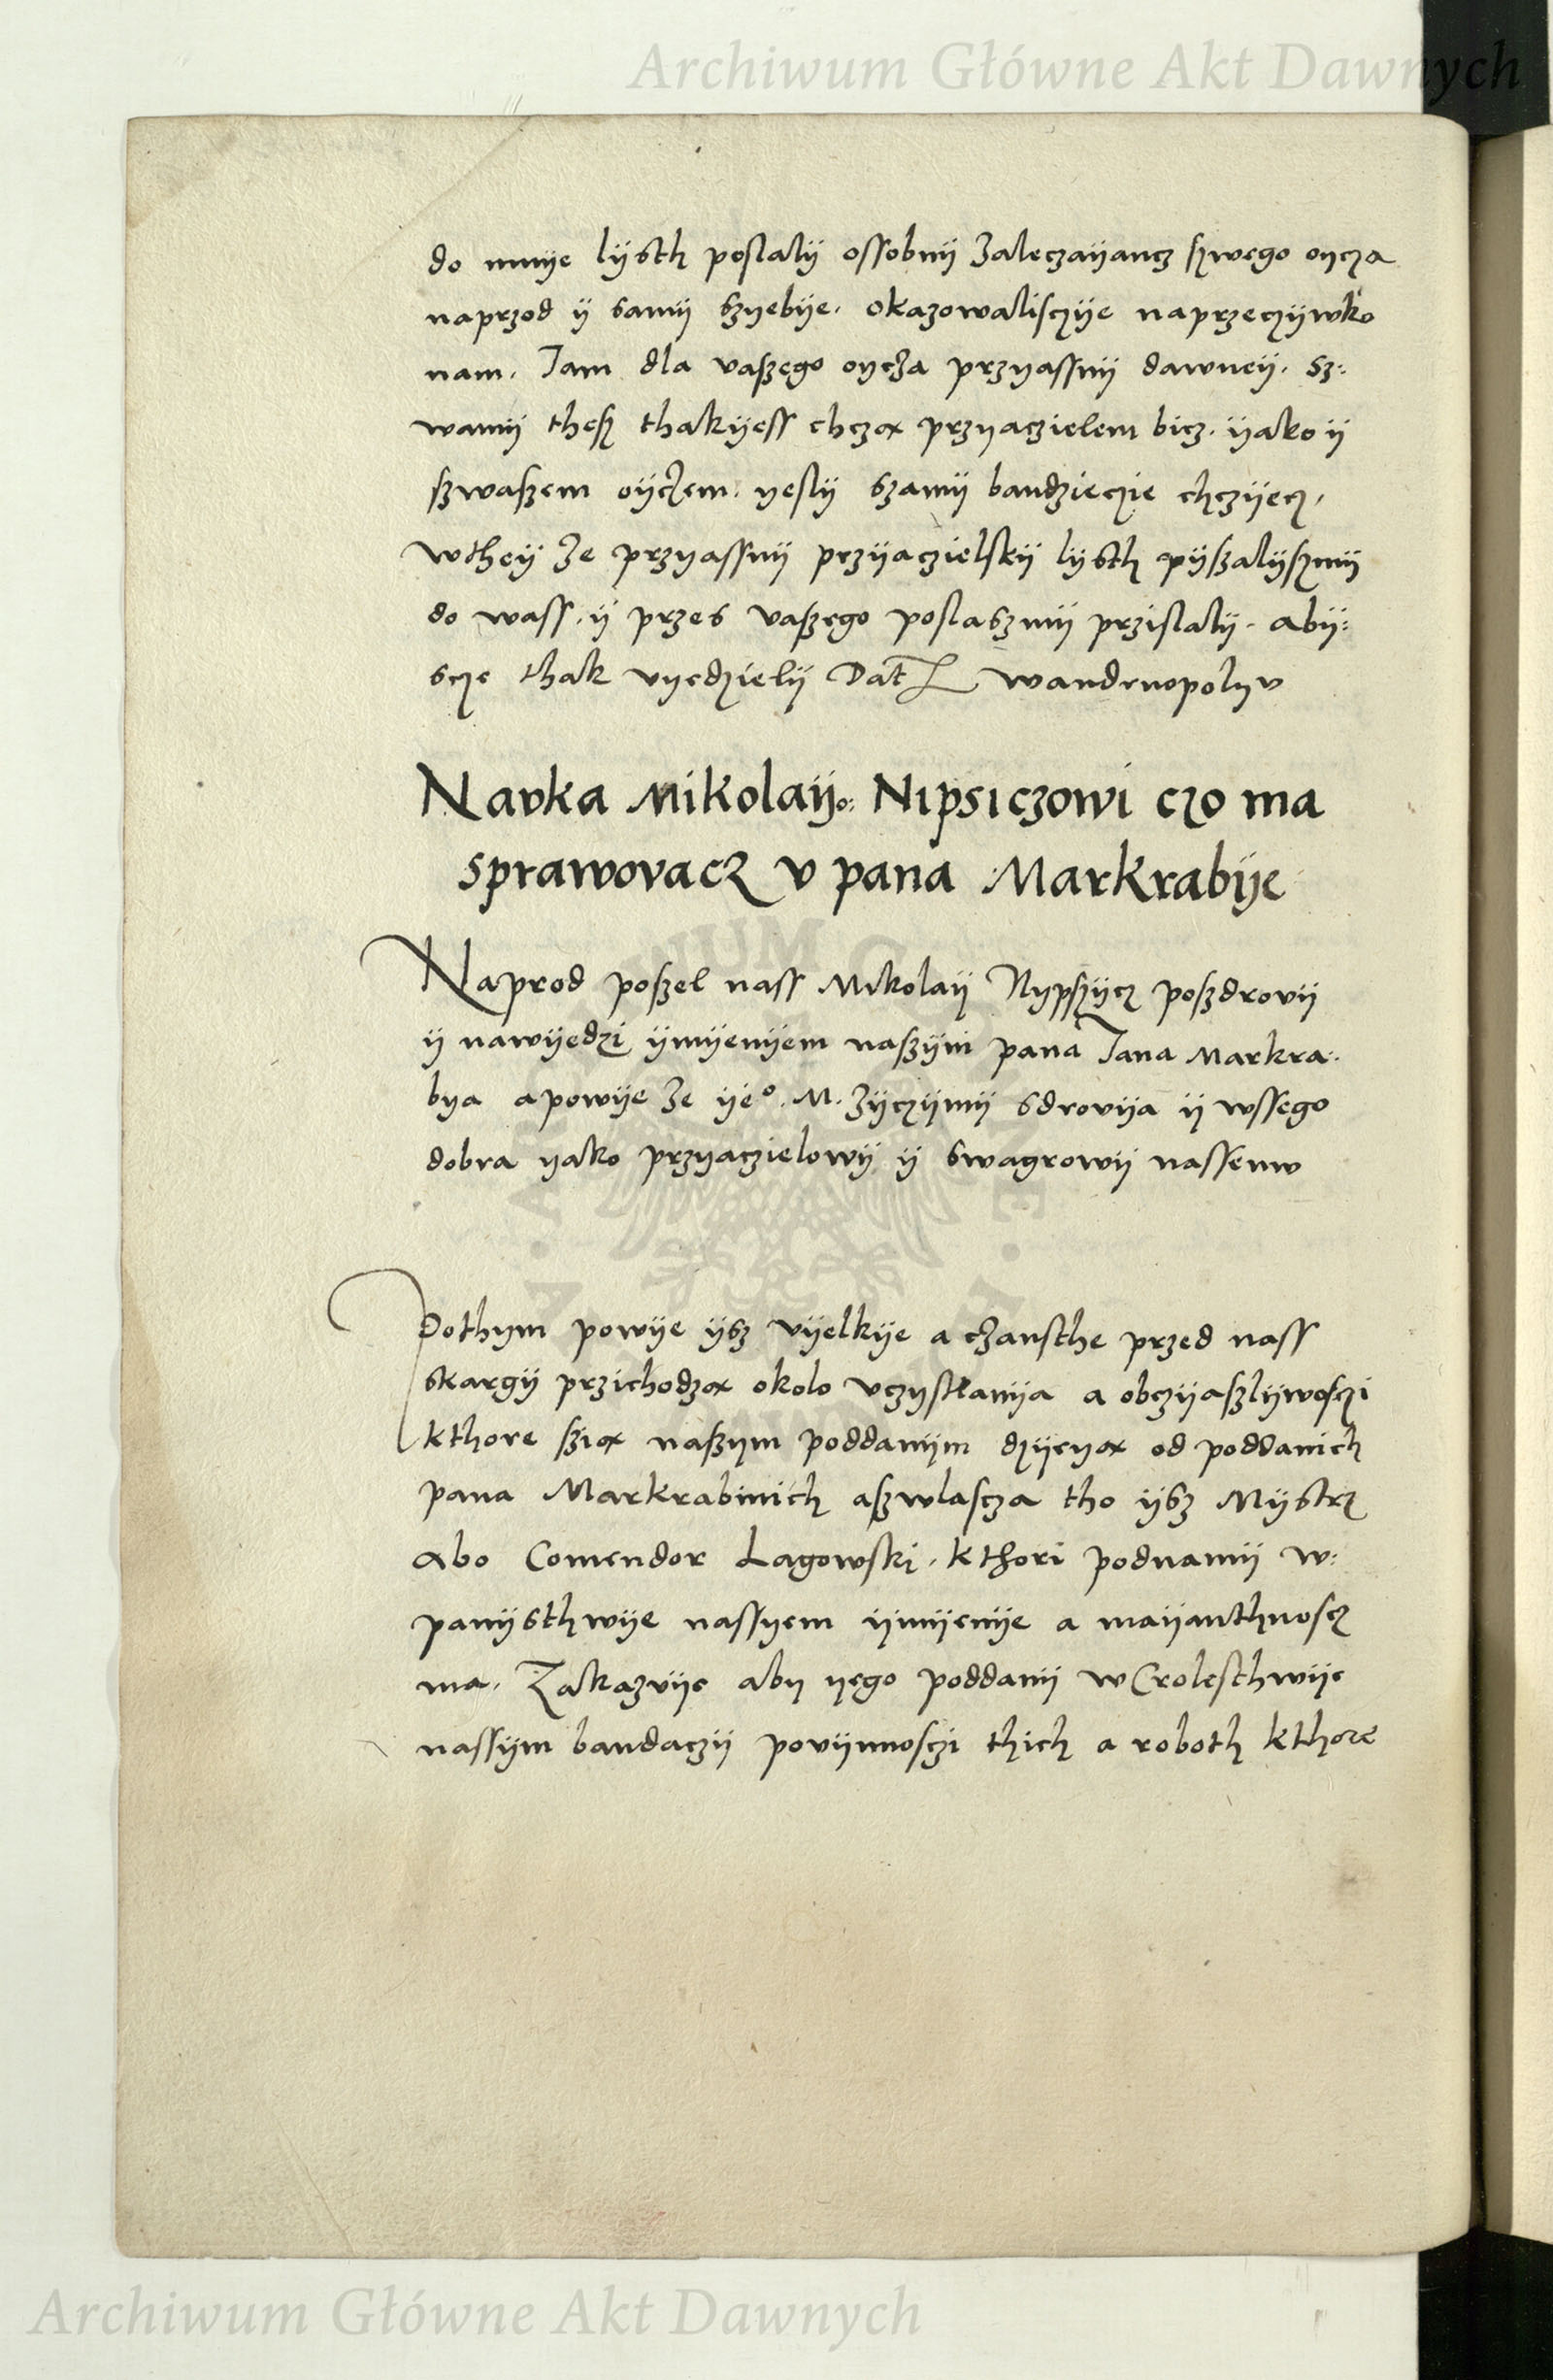 Archiwum Główne Akt Dawnych
do mnÿe lÿsth poslalÿ ossobnÿ zaleczaÿancz szwego oycza
naprzod ÿ samÿ szyebÿe. okazowalisczÿe naprzeczÿwko
nam. Jam dla vaszego oycza przyassnÿ dawneÿ. sz:
wamÿ thesz thakÿess chczą przyaczielem bicz. ÿako ÿ
szwaszem oÿczem. yeslÿ szamÿ bandzieczie chczÿecz.
wtheÿ ze przyassnÿ przÿaczielskÿ lÿsth pÿszalÿszmÿ
do wass. ÿ przes vaszego poslaszmÿ przislalÿ. abÿ:
scze thak vyedzielÿ Dat wandrnopolyv
Navka Mikolaÿo: Nipsiczowi czo ma
sprawovacz v pana Markrabÿe
Naprod poszel nass Mikolaÿ Nypszÿcz poszdrovÿ
ÿ nawÿedzi ÿmÿenÿem naszÿm pana Jana Markra.
bya apowÿe ze ÿeº. M. zÿczÿmÿ sdrovÿa ÿ wssego
dobra yako przyaczielowÿ ÿ swagrowÿ nassemv
Pothym powÿe ÿsz vÿelkÿe a czansthe przed nass
skargÿ przichodzą okolo vczysnanÿa a obczÿaszlÿwosczi
kthore szią naszym poddanÿm dzÿeyą od poddanich
pana Markrabinich aszwlascza tho ÿsz Mÿstrz
abo Comendor Lagowski. kthori podnamÿ w:
panÿsthwÿe nassyem ÿmÿenÿe a maÿanthnoscz
ma. Zakazvÿe aby yego poddanÿ wCrolesthwÿe
nassÿm bandaczÿ povÿnnosczi thich a roboth kthore
Archiwum Główne Akt Dawnych